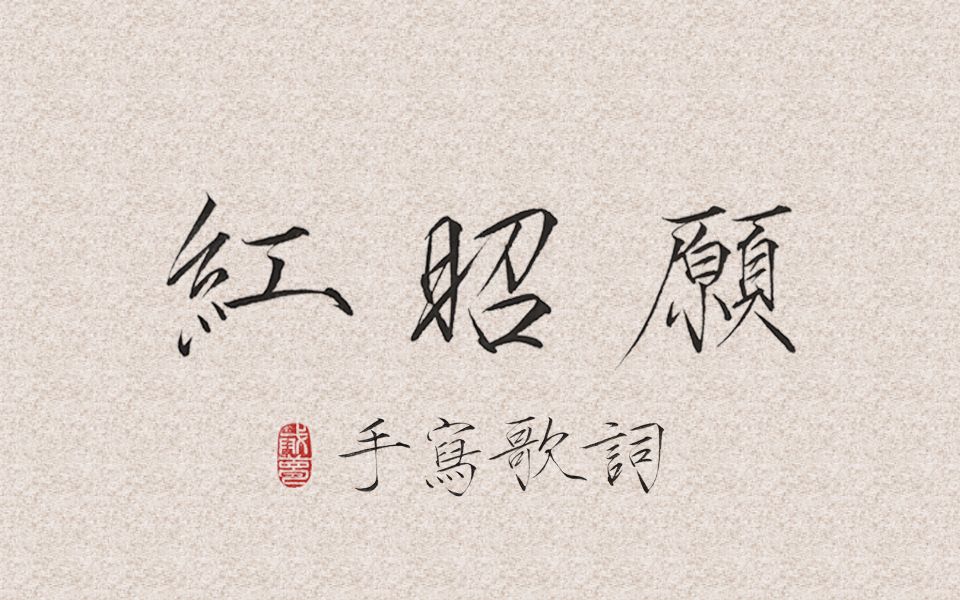 紅昭願
手寫歌詞